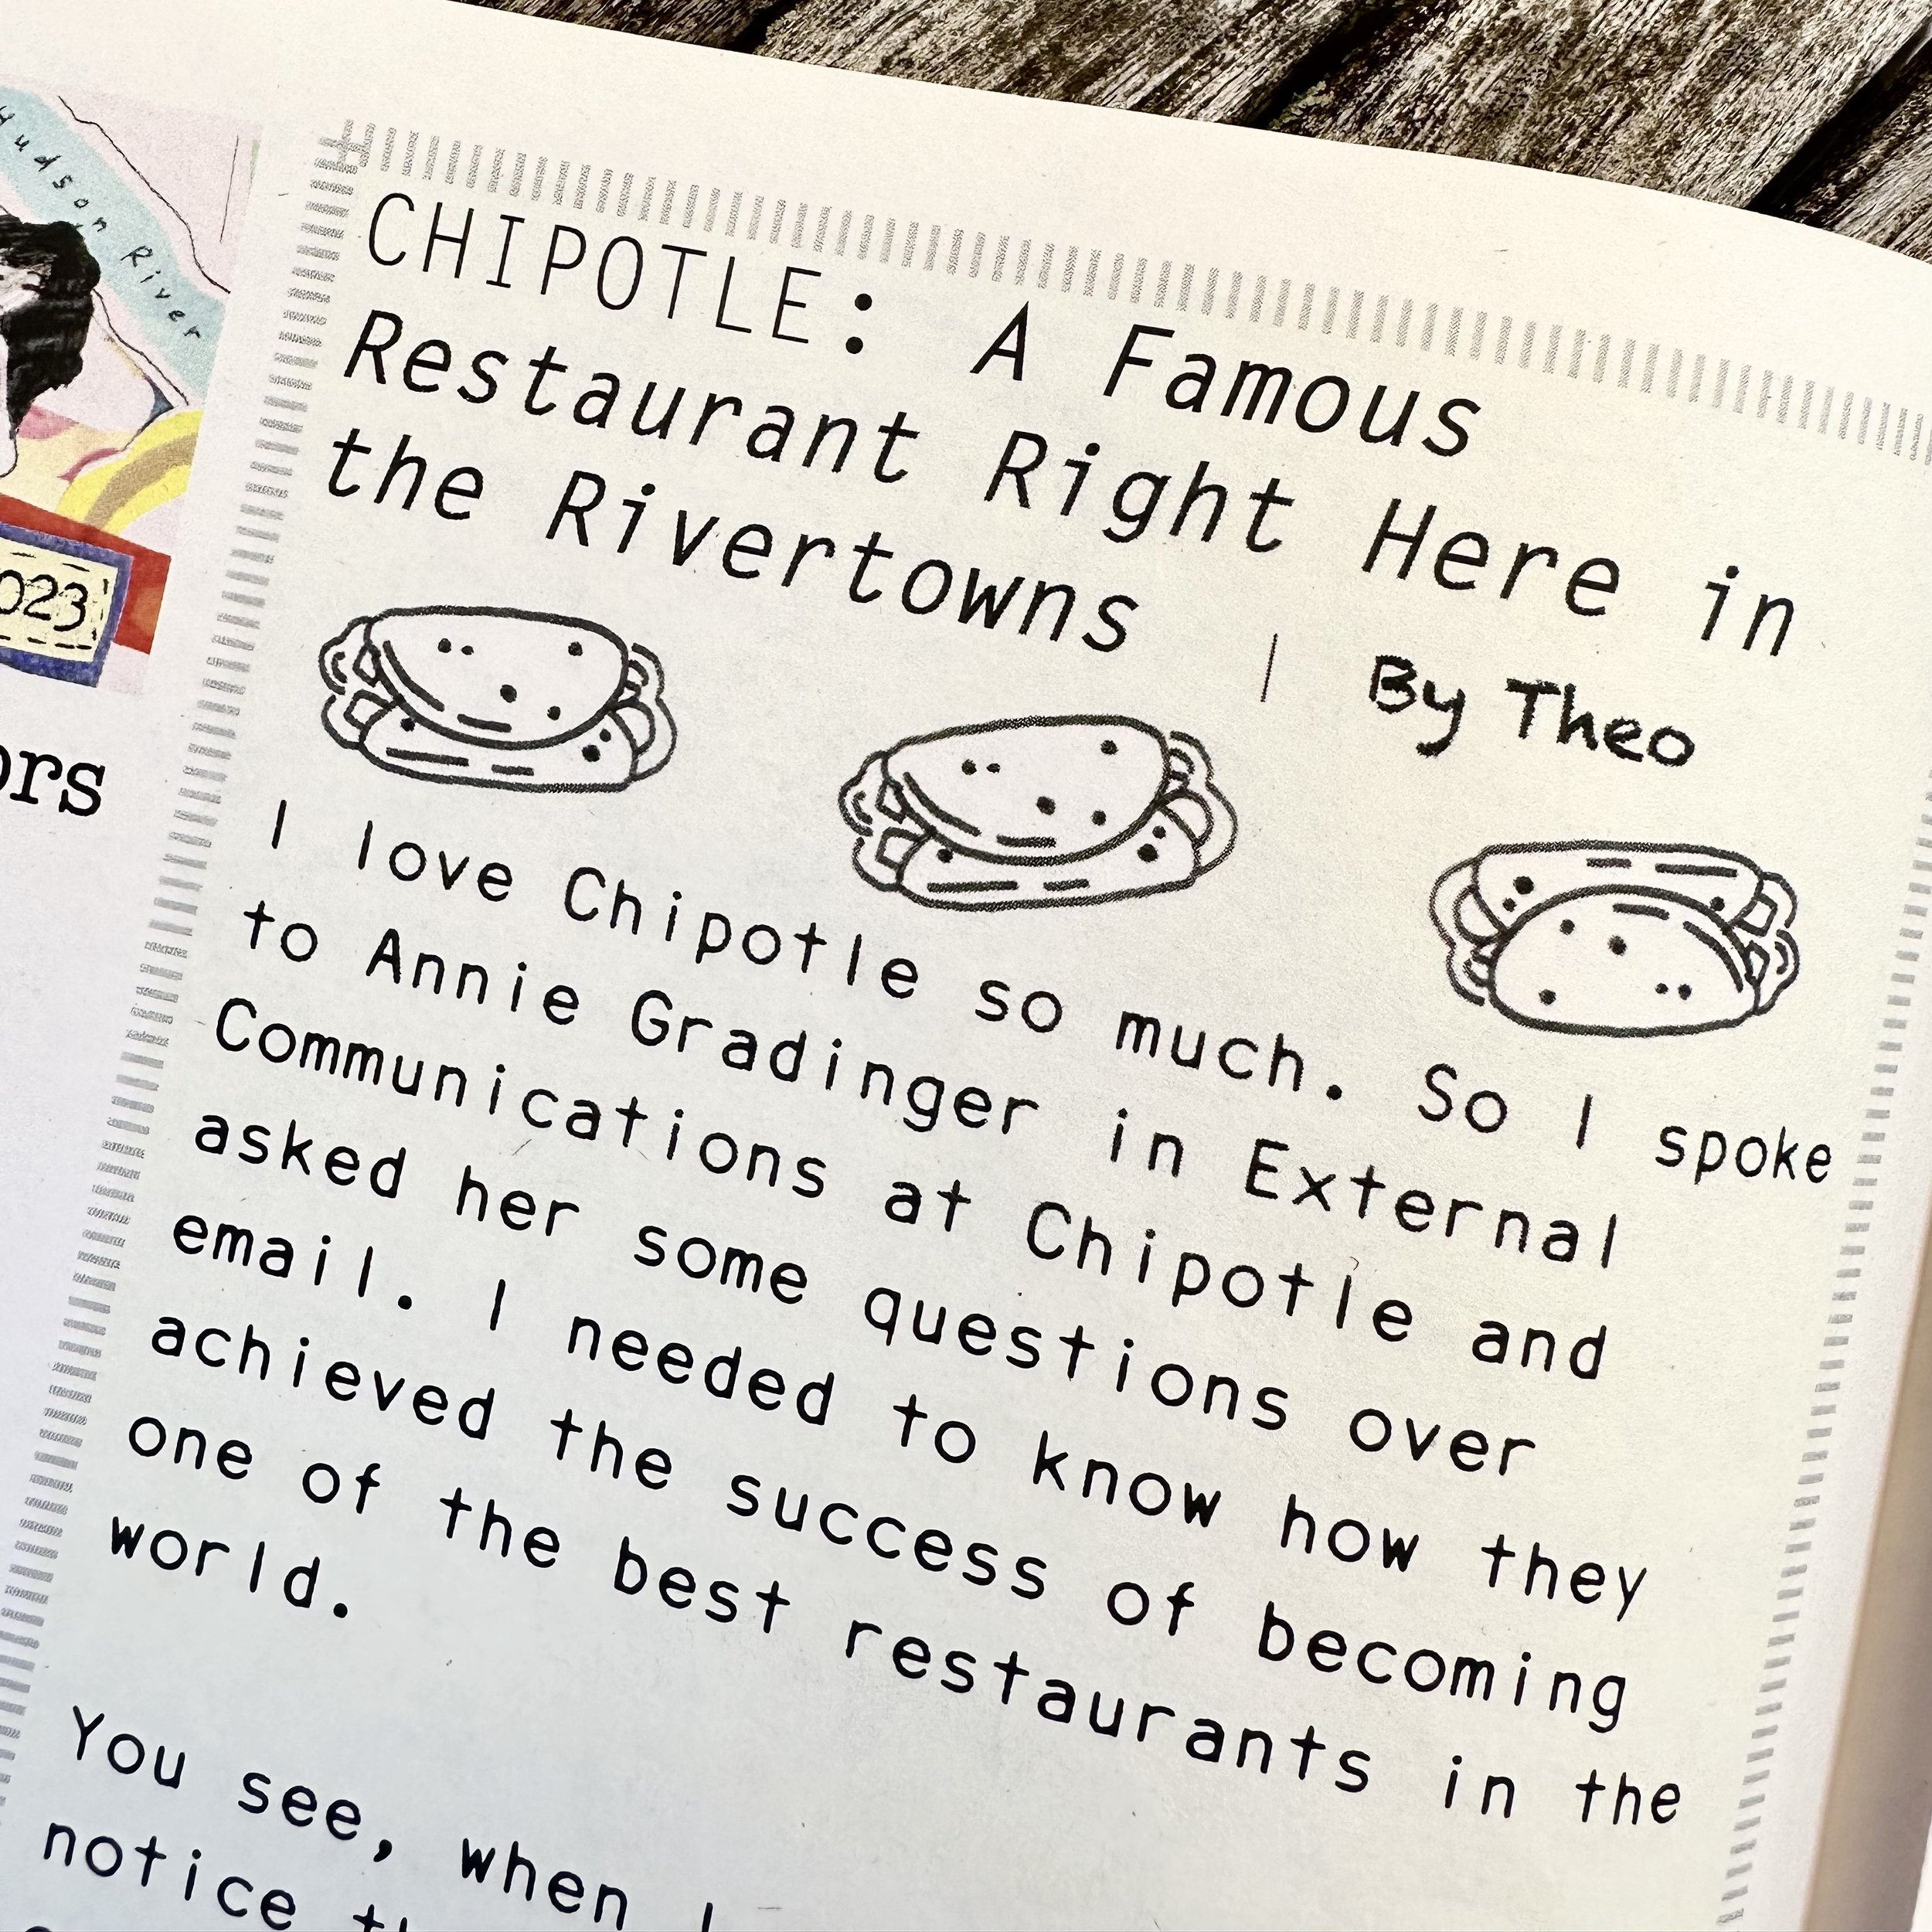 Hudson River
023
ors
CHIPOTLE: A Famous
Restaurant Right Here in
the Rivertowns | By Theo
I love Chipotle so much. So I spoke
to Annie Gradinger in External
Communications at Chipotle and
asked her some questions over
email. I needed to know how they
achieved the success of becoming
one of the best restaurants in the
world.
You see, when I
notice